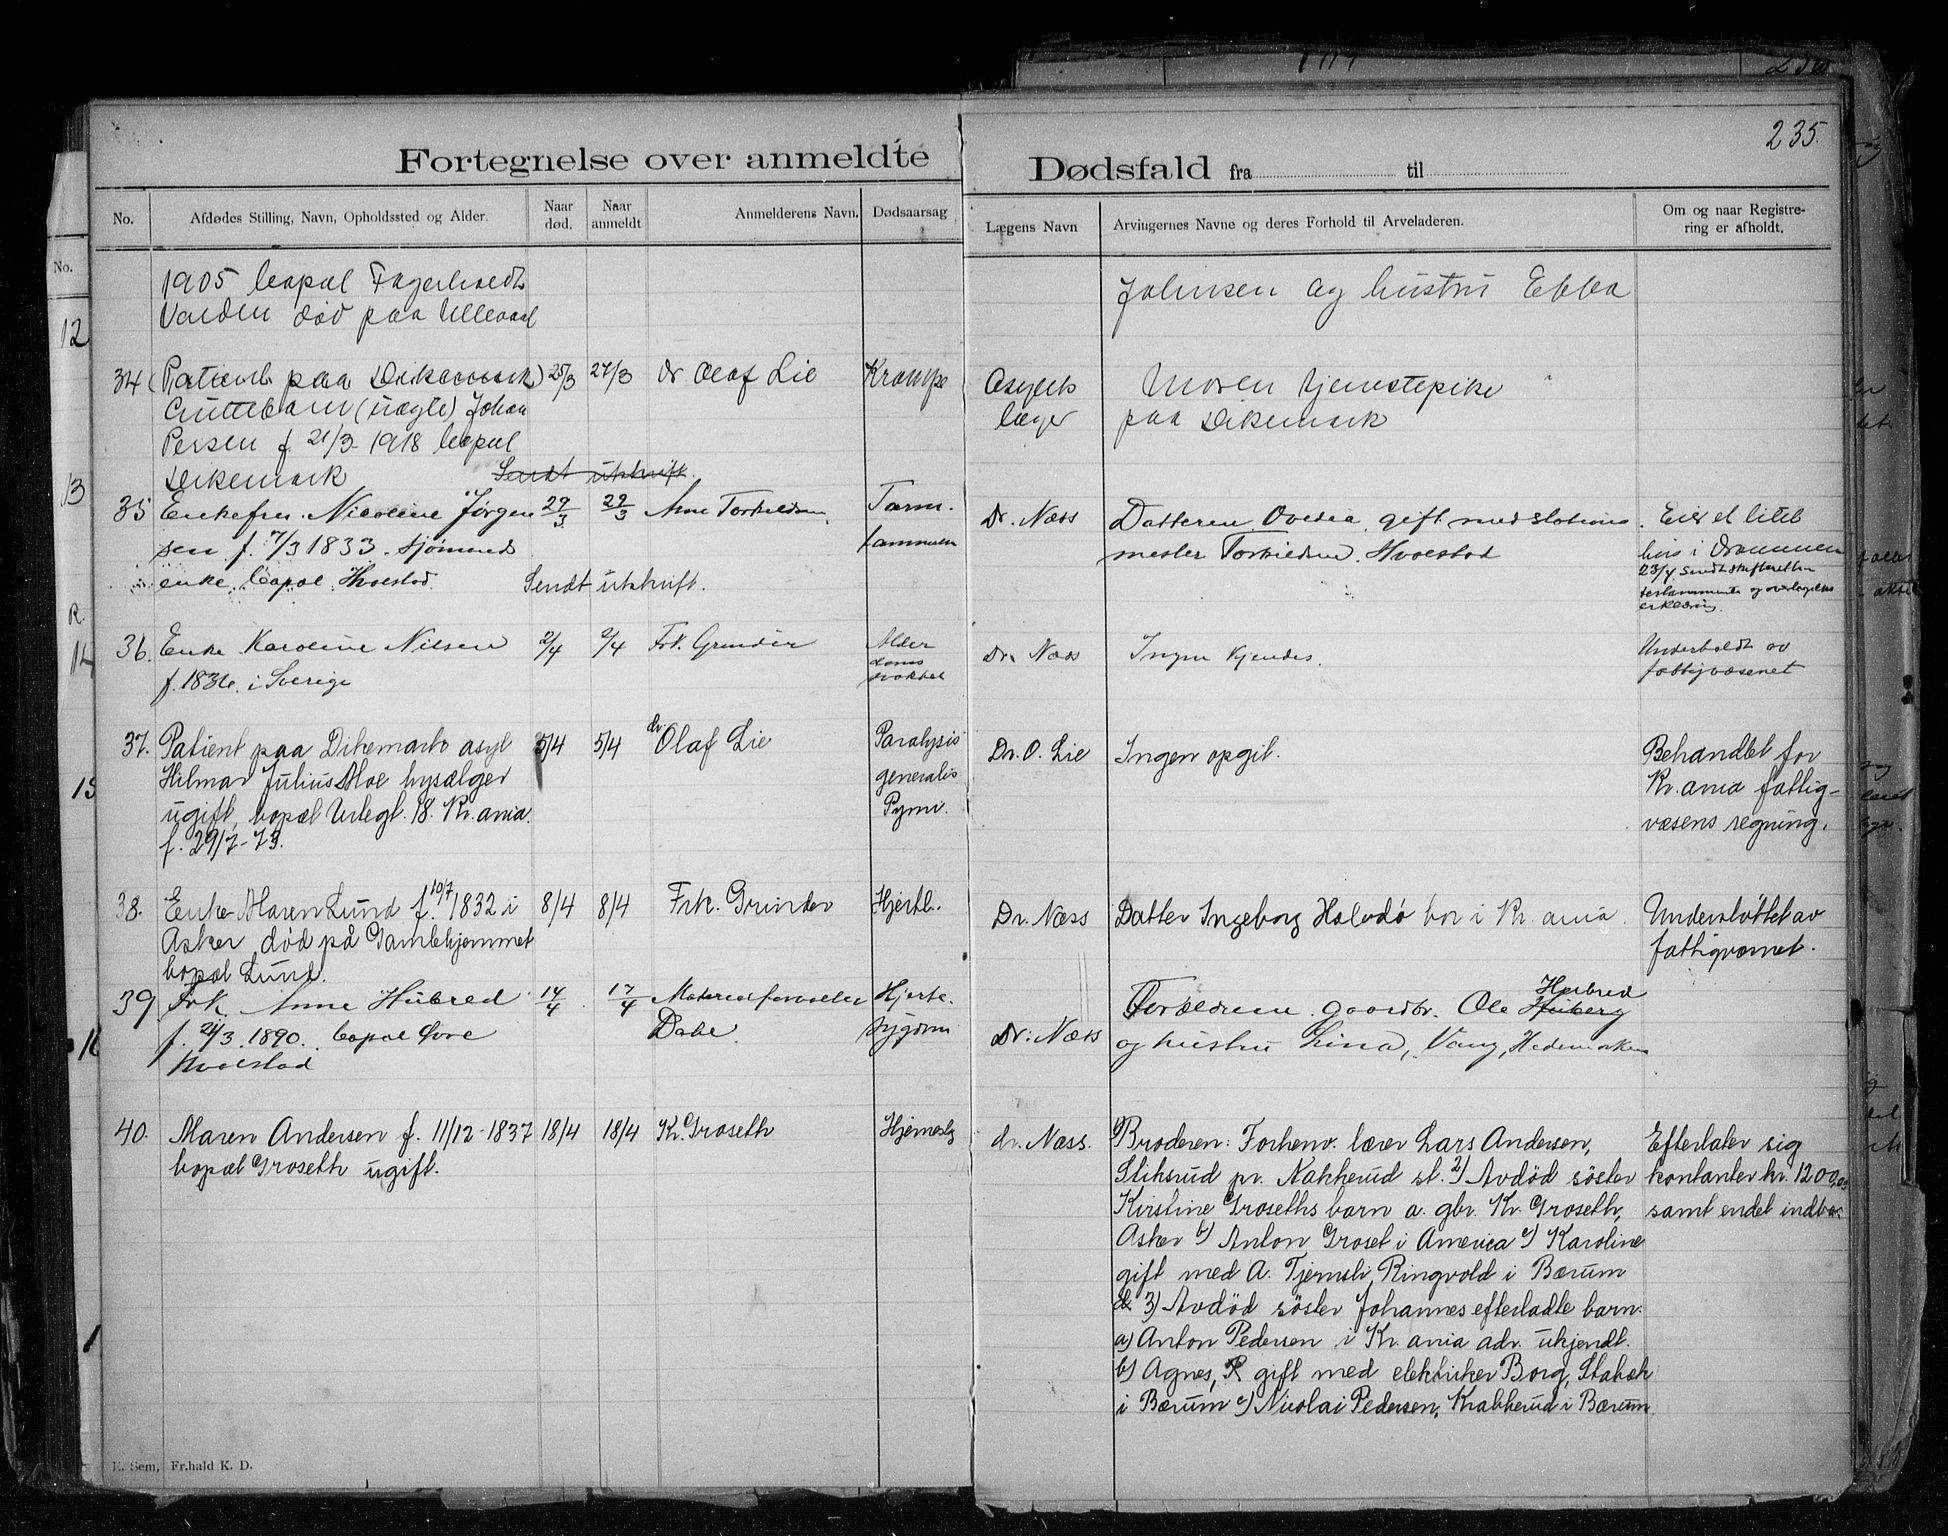 235.
Fortegnelse over anmeldte Dødsfald fra til
No. Afdødes Stilling, Navn, Opholdssted og Alder. Naar død. Naar anmeldt Anmelderens Navn. Dødsaarsag Lægens Navn Arvingernes Navne og deres Forhold til Arveladeren. Om og naar Registrering er afholdt.
1905 bopæl Fagerholdt
død paa Ullevaal
Johnsen og hustru Ebba
34 (Patient paa Dikemark) 25/3 27/3 Dr Olaf Lie Krampe Asylets Moren tjenestepike
Guttebarn (uægte) Johan læger paa Dikemark
Persen f. 21/3-1918 bopæl
Dikemark Sendt utskrift.
35 Enkefru Nicoline Jørgen 29/3 29/3 Anne Torkildsen Tarm- Dr. Næss Datteren Ovedia gift med stations Eier et litet
sen f. 7/3 1833. sjømands mester Torkildsen. Hvalstad hus i Drammen
23/4 sendt skifteretten
enke, bopæl Hvalstad. Sendt utskrift. testamente og
erklæring.
36. Enke Karoline Nilsen 2/4 2/4 Frk. Grinder Alder Dr. Næss Ingen kjendes. Underholdt av
f. 1836. i Sverige doms svakhet fattigvæsenet
37. Patient paa Dikemark asyl 5/4 5/4 dr. Olaf Lie Paralysis Dr. O. Lie Ingen opgit. Behandlet for
Hilmar Julius Moe lysælger generalis Kr.ania fattig-
ugift, bopæl Urtegt. 18. Kr.ania. væsens regning.
f. 29/7-73.
38. Enke Maren Lund f. 10/7 1832 i 8/4 8/4 Frk. Grinder Hjertl. Dr. Næss Datter Ingeborg Halvdø bor i Kr.ania. Understøttet av
Asker død på Gamlehjemmet fattigvæsnet.
bopæl Lund.
39 Frk. Anne Hubred 14/4 17/4 Materialforvalter Hjerte- Dr. Næss Forældrene gaardbr. Ole Huberg Hubred
f. 24/3. 1890. bopæl Øvre Dahl. sygdom og hustru Lina, Vang, Hedemarken
Hvalstad
40. Maren Andersen f. 11/12-1837 18/4 18/4 Kr. Groseth Hjerneslg dr. Næss. Broderen: Forhenv. lærer Lars Andersen, Efterlater sig
bopæl Groseth ugift. Sliksrud pr. Nakkerud st. 2) Avdød søster kontanter kr. 1200,00
Kirstine Groseths barn a. gbr. Kr. Groseth, samt endel indbo.
Asker b) Anton Groset i America c) Karoline
gift med A. Tjernsli, Ringvold i Bærum
& 3) Avdød søster Johannes efterladte barn:
a) Anton Pedersen i Kr.ania adr. ukjendt.
b) Agnes, gift med elektriker Borg, Stabæk
i Bærum c) Nicolai Pedersen, Krakkerud i Bærum.
E. Sem, Fr.hald K. D.